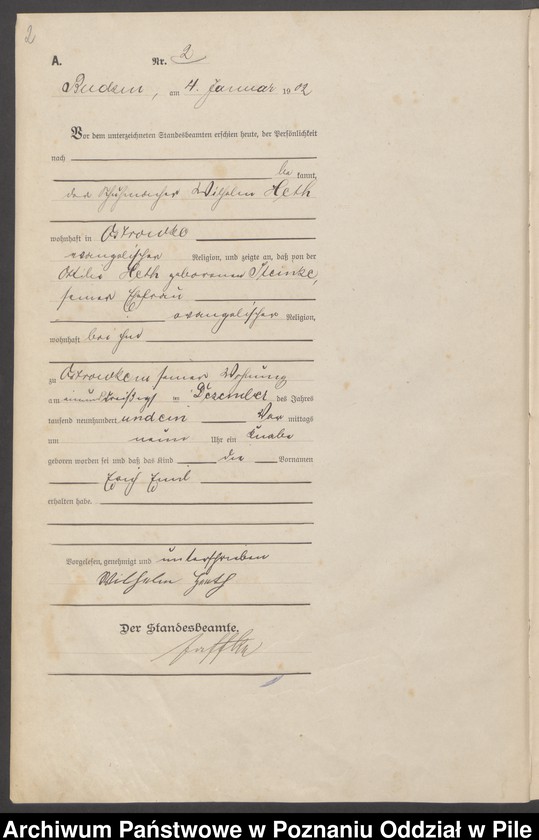 2
A. Nr. 2
am 4. Januar 1902
Vor dem unterzeichneten Standesbeamten erschien heute, der Persönlichkeit
nach
be kannt,
der Schuhmacher Wilhelm Heth
wohnhaft in Ostrowke
evangelischer Religion, und zeigte an, daß von der
Ottilie Heth geborenen Steinke,
seiner Ehefrau
evangelischer Religion,
wohnhaft bei ihm
zu Ostrowke in seiner Wohnung
am einunddreißigsten Dezember des Jahres
tausend neunhundert und ein Vor mittags
um neun Uhr ein Knabe
geboren worden sei und daß das Kind die Vornamen
Erich Emil
erhalten habe.
Vorgelesen, genehmigt und unterschrieben
Wilhelm Heth
Der Standesbeamte.
Archiwum Państwowe w Poznaniu Oddział w Pile